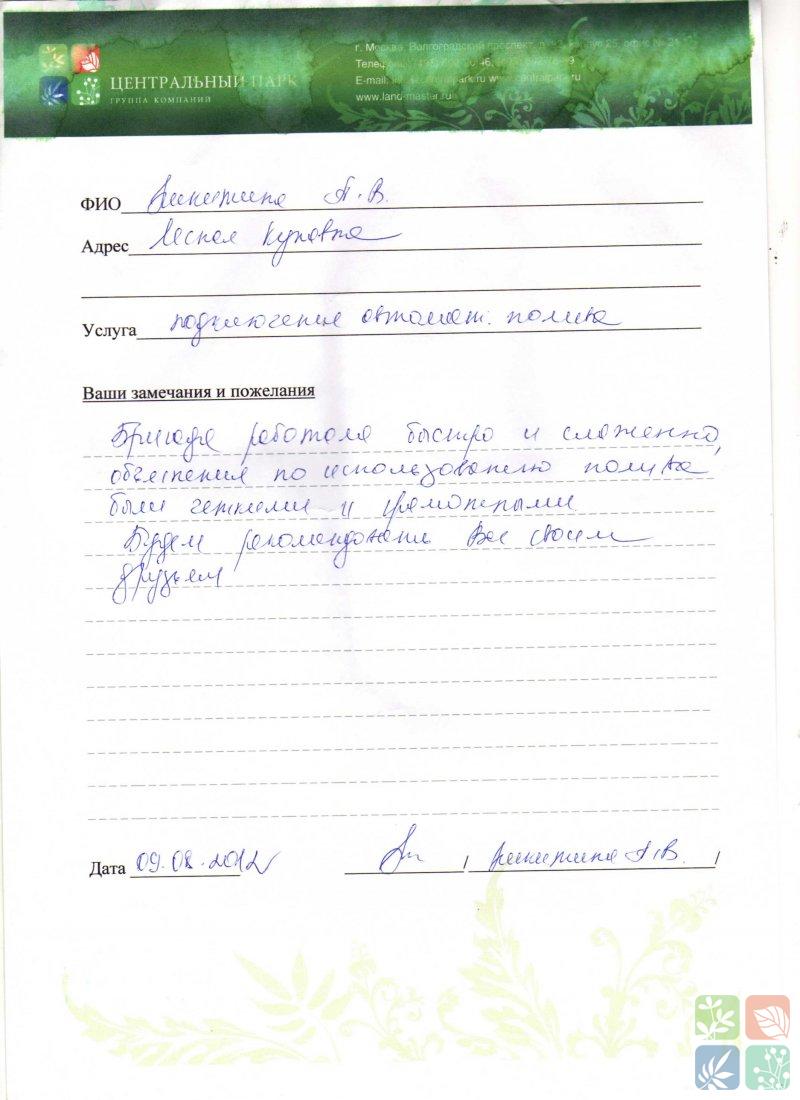 ЦЕНТРАЛЬНЫЙ ПАРК
ГРУППА КОМПАНИЙ
г. Москва, Волгоградский проспект,
E-mail: www.centralpark.ru
www.land-master.ru
ФИО Никитина А.В.
Адрес Лесная
Услуга подключение автомат. полива
Ваши замечания и пожелания
Бригада работала быстро и слаженно,
объяснения по использованию полива
были четкими и грамотными.
Будем рекомендовать Вас своим
друзьям
Дата 09.08.2012 / Никитина А.В. /